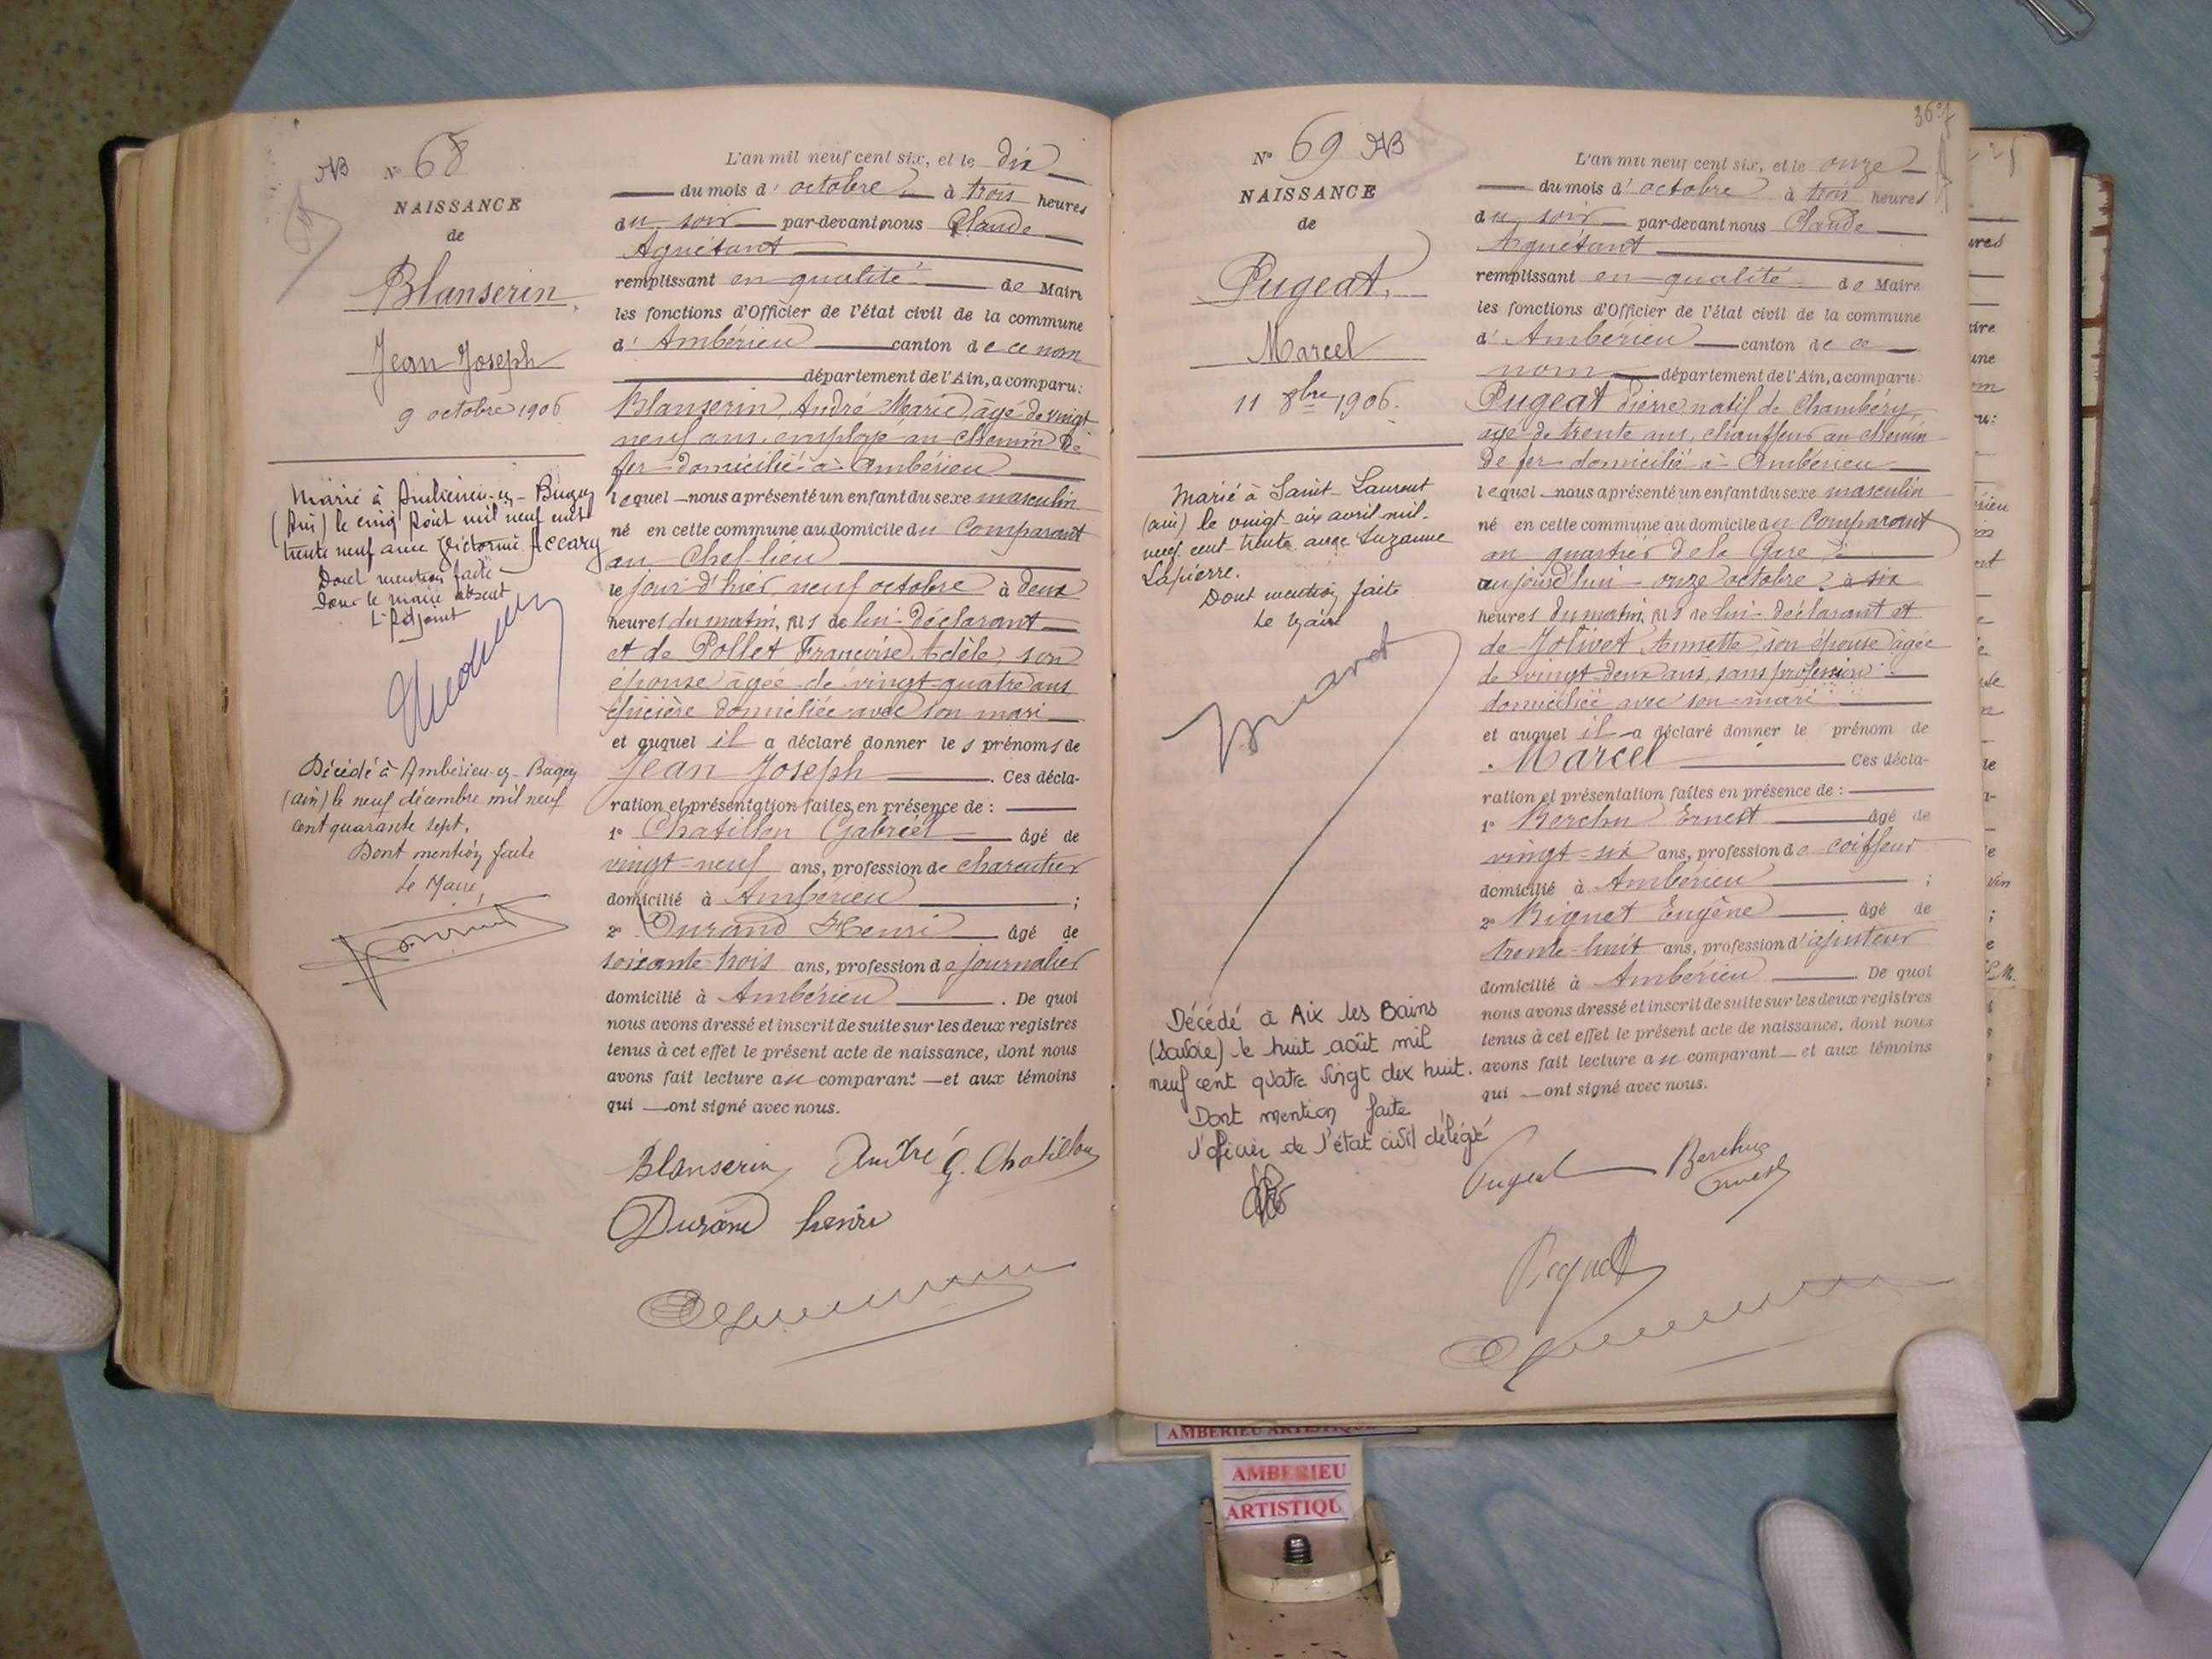 AB N° 68
NAISSANCE
de
Blanserin
Jean Joseph
9 octobre 1906
Marié à Ambérieu-en-Bugey
(Ain) le cinq août mil neuf cent
trente neuf avec Victorine Accary
Dont mention faite
Pour le maire absent
L'Adjoint
Décédé à Ambérieu-en-Bugey
(Ain) le neuf décembre mil neuf
cent quarante sept.
Dont mention faite
Le Maire,
L'an mil neuf cent six, et le dix
du mois d'octobre à trois heures
du soir par-devant nous Claude
Aguétant
remplissant en qualité de Maire
les fonctions d'Officier de l'état civil de la commune
d'Ambérieu canton de ce nom
département de l'Ain, a comparu:
Blanserin, André Marie, âgé de vingt
neuf ans, employé au chemin de
fer domicilié à Ambérieu
lequel nous a présenté un enfant du sexe masculin
né en cette commune au domicile du Comparant
au Chef-lieu
le jour d'hier, neuf octobre à deux
heures du matin, fils de lui-déclarant
et de Pollet Françoise Adèle, son
épouse âgée de vingt-quatre ans
épicière domiciliée avec son mari
et auquel il a déclaré donner les prénoms de
Jean Joseph. Ces décla-
ration et présentation faites en présence de :
1° Chatillon Gabriel âgé de
vingt-neuf ans, profession de charcutier
domicilié à Ambérieu ;
2° Durand Henri âgé de
soixante-trois ans, profession de journalier
domicilié à Ambérieu. De quoi
nous avons dressé et inscrit de suite sur les deux registres
tenus à cet effet le présent acte de naissance, dont nous
avons fait lecture au comparant et aux témoins
qui ont signé avec nous.
Blanserin André G. Chatillon
Durand henri
N° 69 AB
NAISSANCE
de
Pugeat
Marcel
11 8bre 1906.
Marié à Saint-Laurent
(Ain) le vingt-six avril mil-
neuf cent-trente avec Suzanne
Lapierre.
Dont mention faite
Le Maire
Décédé à Aix les Bains
(Savoie) le huit août mil
neuf cent quatre vingt dix huit.
Dont mention faite
l'officier de l'état civil délégué
L'an mil neuf cent six, et le onze
du mois d'octobre à trois heures
du soir par-devant nous Claude
Aguétant
remplissant en qualité de Maire
les fonctions d'Officier de l'état civil de la commune
d'Ambérieu canton de ce
nom département de l'Ain, a comparu:
Pugeat Pierre, natif de Chambéry,
âgé de trente ans, chauffeur au chemin
de fer domicilié à Ambérieu
lequel nous a présenté un enfant du sexe masculin
né en cette commune au domicile du Comparant
au quartier de la Gare
aujourd'hui onze octobre à six
heures du matin, fils de lui-déclarant et
de Jolivet Annette, son épouse âgée
de vingt-deux ans, sans profession
domiciliée avec son mari
et auquel il a déclaré donner le prénom de
Marcel Ces décla-
ration et présentation faites en présence de :
1° Berchu Ernest âgé de
vingt-six ans, profession de coiffeur
domicilié à Ambérieu ;
2° Bignet Eugène âgé de
trente-huit ans, profession d'ajusteur
domicilié à Ambérieu. De quoi
nous avons dressé et inscrit de suite sur les deux registres
tenus à cet effet le présent acte de naissance, dont nous
avons fait lecture au comparant et aux témoins
qui ont signé avec nous.
Pugeat Berchu
Ernest
AMBERIEU
ARTISTIQU